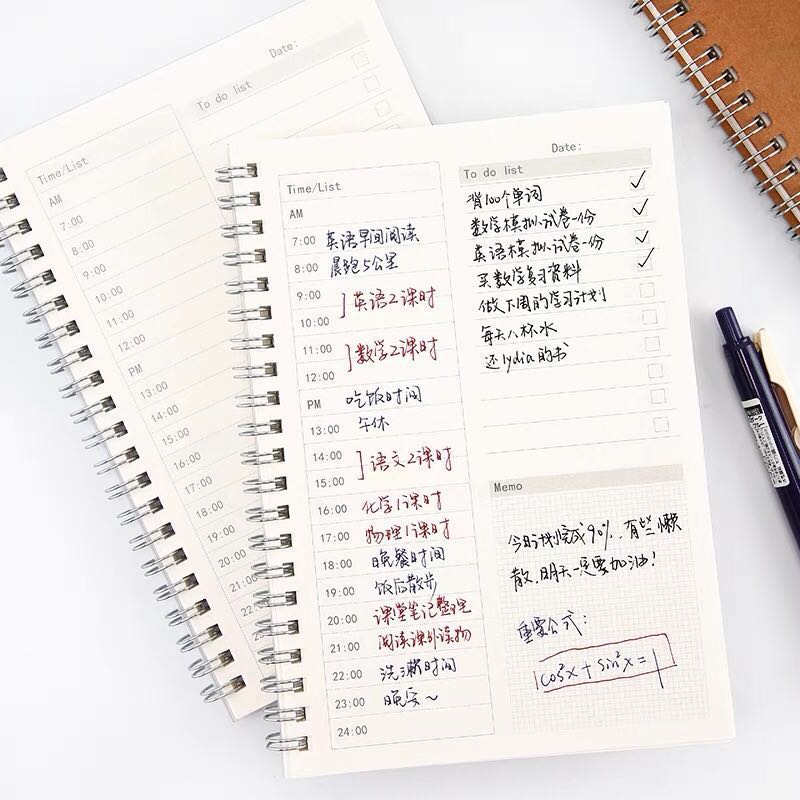 Date:
To do list
Time/List
AM
7:00
8:00
9:00
10:00
11:00
12:00
PM
13:00
14:00
15:00
16:00
17:00
18:00
19:00
20:00
21:00
22:
Date:
Time/List
AM
7:00 英语早间阅读
8:00 晨跑5公里
9:00
10:00
]英语2课时
11:00
12:00
]数学2课时
PM 吃饭时间
13:00 午休
14:00
15:00
]语文2课时
16:00 化学1课时
17:00 物理1课时
18:00 晚餐时间
19:00 饭后散步
20:00 课堂笔记整理
21:00 阅读课外读物
22:00 洗漱时间
23:00 晚安~
24:00
To do list
背100个单词 ✓
数学模拟试卷一份 ✓
英语模拟试卷一份 ✓
买数学复习资料 ✓
做下周的学习计划
每天八杯水
还lydia的书
Memo
今日计划完成90%，有些懒
散，明天一定要加油！
重要公式：
cos²x + sin²x = 1